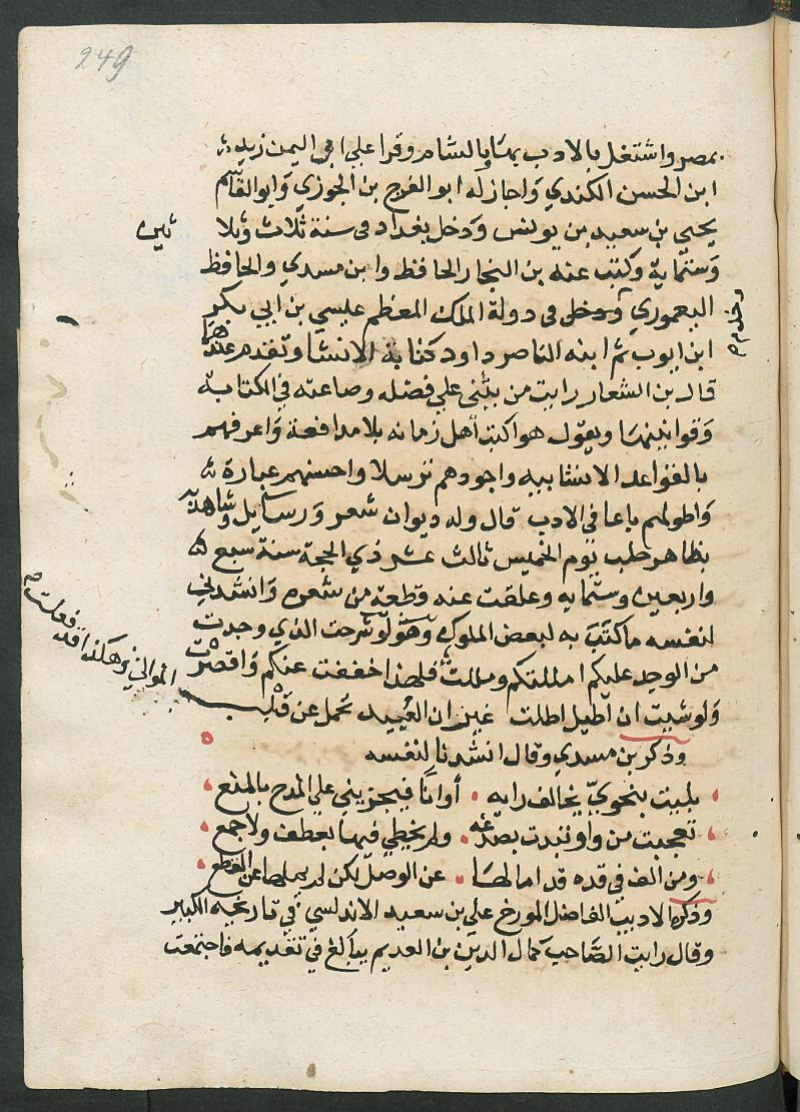 249
بمصر واشتغل بالادب بها وبالشام وقرا علي ابي اليمن زيد
ابن الحسن الكندي واجاز له ابو الفرج بن الجوزي وابو القاسم
يحيي بن سعيد بن يونس ودخل بغداد في سنة ثلاث وثلا
ثين
وستماية وكتب عنه بن النجار الحافظ وابن مسدي والحافظ
اليعموري ودخل في دولة الملك المعظم عيسي بن ابي بكر
وخدم
ابن ايوب ثم ابنه الناصر داود كتابة الانشا وتقدم عندهما
قال بن الشعار رايت من يثني علي فضله وصناعته في الكتابة
وقوانينها ويقول هو اكتب اهل زمانه بلا مدافعة واعرفهم
بالقواعد الانشاييه واجودهم ترسلا واحسنهم عبارة
واطولهم باعا في الادب قال وله ديوان شعر ورسايل وشاهدته
بظاهر حلب يوم الخميس ثالث عشر ذي الحجة سنة سبع
واربعين وستمايه وعلقت عنه قطعة من شعره وانشدني
لنفسه ما كتب به لبعض الملوك وهو لو شرحت الذي وجدت
من الوجد عليكم امللتكم ومللت فلهذا خففت عنكم واقصرت
ولو شيت ان اطيل اطلت غير ان العبيد تحمل عن قلب
الموالي وهكذا قد فعلت
وذكر بن مسدي وقال انشدنا لنفسه
بليت بنحوي يخالف رايه اوانا فيجزيني علي المدح بالمنع
تعجبت من واو تبدت بصدغه ولم يخطي فيها بعطف ولا جمع
ومن الف في قده قد امالها عن الوصل لكن لم يملها عن القطع
وذكره الاديب الفاضل المورخ علي بن سعيد الاندلسي في تاريخه الكبير
وقال رايت الصاحب كمال الدين بن العديم يبالغ في تقديمه فاجتمعت